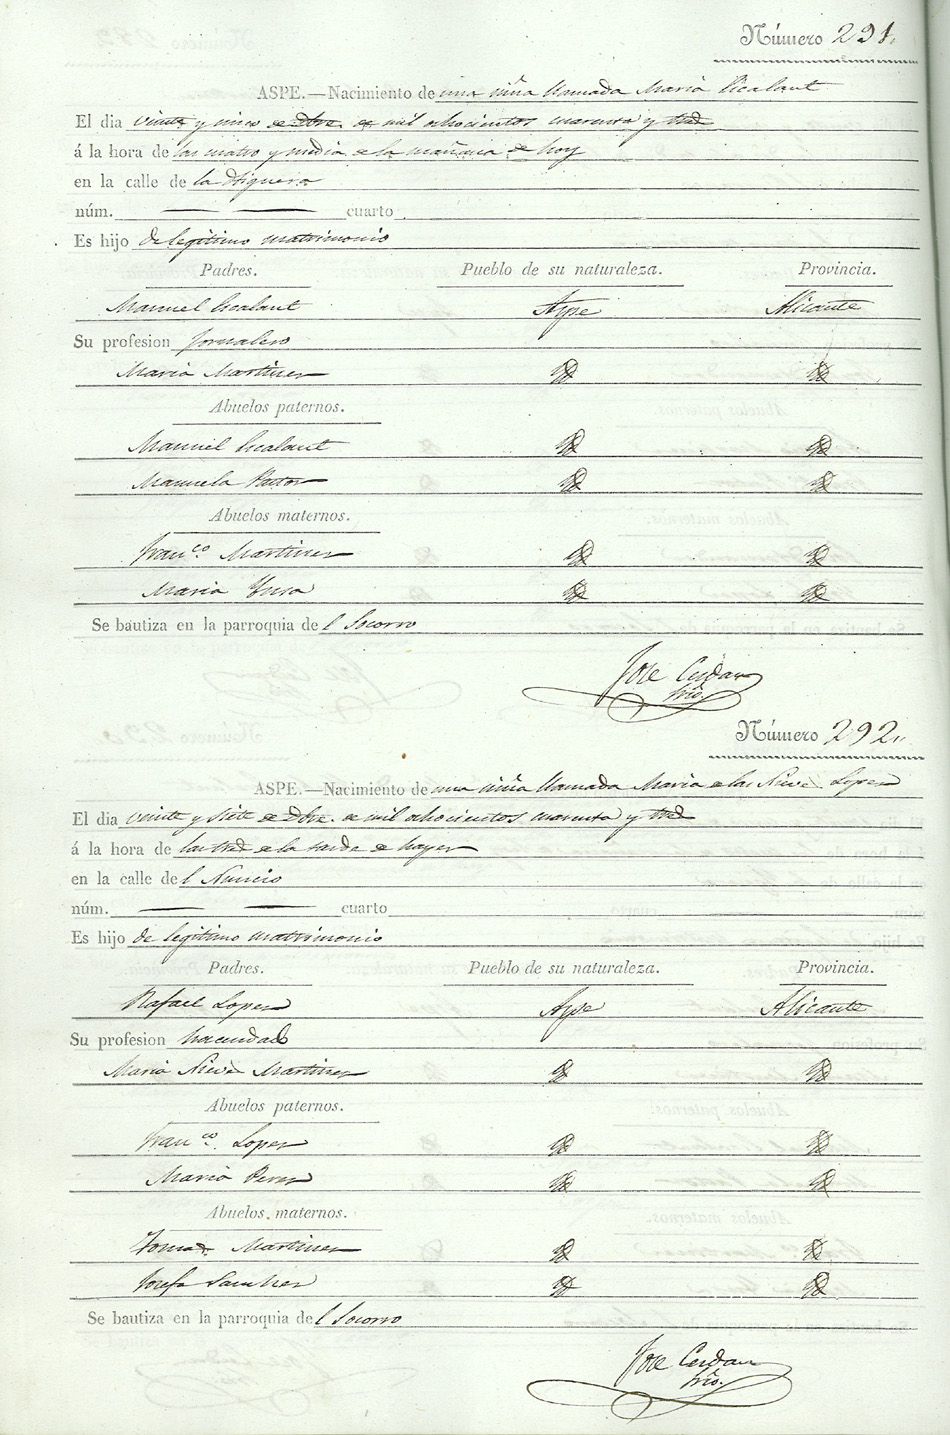 Número 291.
ASPE.—Nacimiento de una niña llamada Maria
El dia veinte y cinco de Dbre. de mil ochocientos cuarenta y tres
á la hora de las cuatro y media de la mañana de hoy
en la calle de la
núm. cuarto
Es hijo de legitimo matrimonio
Padres. Pueblo de su naturaleza. Provincia.
Manuel Aspe Alicante
Su profesion Jornalero
Maria Martinez
Abuelos paternos.
Manuel
Manuela Pastor
Abuelos maternos.
Franco. Martinez
Maria
Se bautiza en la parroquia del Socorro
Jose Cerdan
Srio.
Número 292.
ASPE.—Nacimiento de una niña llamada Maria de las Nieves Lopez
El dia veinte y siete de Dbre. de mil ochocientos cuarenta y tres
á la hora de las tres de la tarde de hayer
en la calle del Nuncio
núm. cuarto
Es hijo de legitimo matrimonio
Padres. Pueblo de su naturaleza. Provincia.
Rafael Lopez Aspe Alicante
Su profesion hacendado
Maria Nieves Martinez
Abuelos paternos.
Franco. Lopez
Maria Perez
Abuelos maternos.
Tomas Martinez
Josefa Sanchez
Se bautiza en la parroquia del Socorro
Jose Cerdan
Srio.